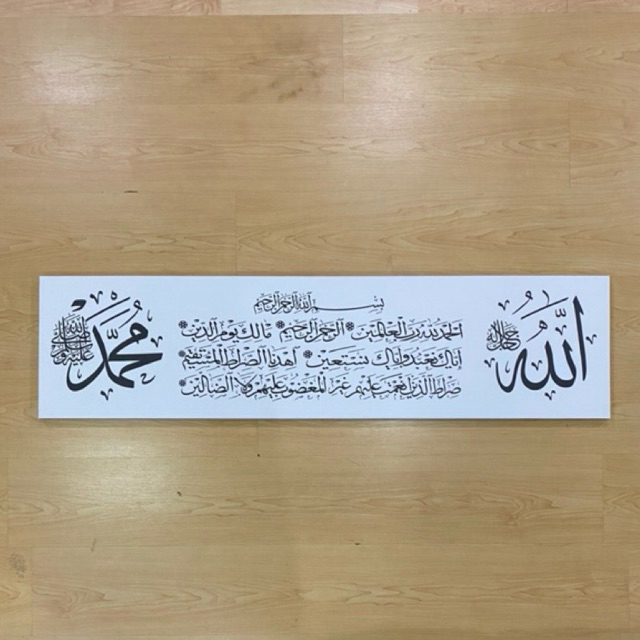 الله
جل جلاله
بسم الله الرحمن الرحيم
الحمد لله رب العالمين * الرحمن الرحيم * مالك يوم الدين *
إياك نعبد وإياك نستعين * اهدنا الصراط المستقيم *
صراط الذين أنعمت عليهم غير المغضوب عليهم ولا الضالين *
محمد
صلى الله عليه وسلم